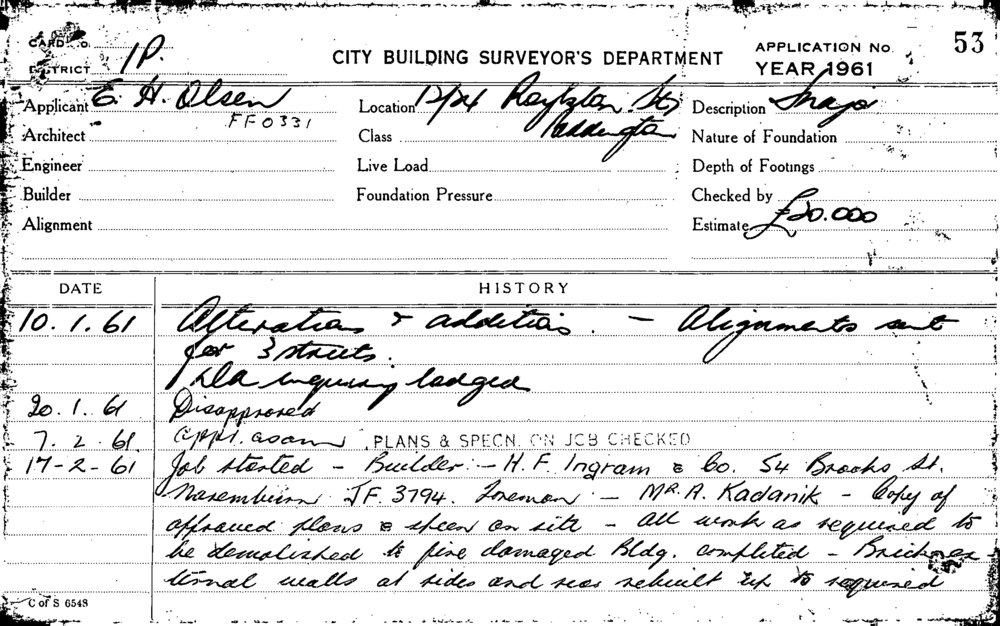 CARD No.
DISTRICT 1P.
CITY BUILDING SURVEYOR'S DEPARTMENT
APPLICATION No. 53
YEAR 1961
Applicant E. H. Olsen
FF0331
Location St,
Paddington
Description
Architect
Class
Nature of Foundation
Engineer
Live Load
Depth of Footings
Builder
Foundation Pressure
Checked by
Alignment
Estimate £20.000
DATE HISTORY
10.1.61 Alterations & additions. - Alignments sent
for 3 streets.
DA enquiry lodged
20.1.61 Disapproved
7.2.61 PLANS & SPECN. ON JOB CHECKED
17-2-61 Job started - Builder - H.F. Ingram & Co. 54 Brooks St.
Naremburn JF. 3794. Foreman - Mr. A. Kadanik - Copy of
approved plans & specn on site - all work as required to
be demolished to fire damaged Bldg. completed - Brick ex
ternal walls at sides and rear rebuilt up to required
C of S 6548